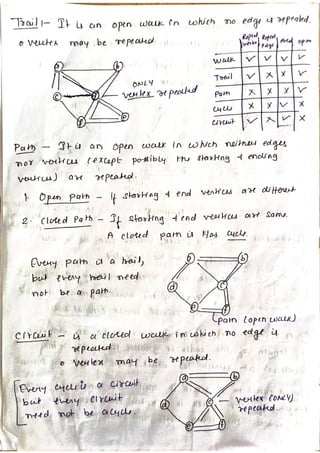 Trail :- It is an open walk in which no edge is repeated.
o Vertex may be repeated.
Repeat vertex Repeat edge closed open
Walk ✓ ✓ ✓ ✓
Trail ✓ X X ✓
Path X X ✓
Cycle X X ✓ X
Circuit ✓ X ✓ X
a b
c
ONLY
vertex repeated
Path - It is an open walk in which neither edges
nor vertices (except possibly the starting & ending
vertices) are repeated.
1. Open path - if starting & end vertices are different
2. Closed Path - If starting & end vertices are same.
A closed path is k/as cycle.
Every path is a trail,
but every trail need
not be a path.
b
d
path (open walk)
Circuit - is a closed walk in which no edge is
repeated.
o Vertex may be repeated.
Every cycle is a circuit
but every circuit
need not be a cycle.
a b
d c
vertex (ONLY)
repeated.